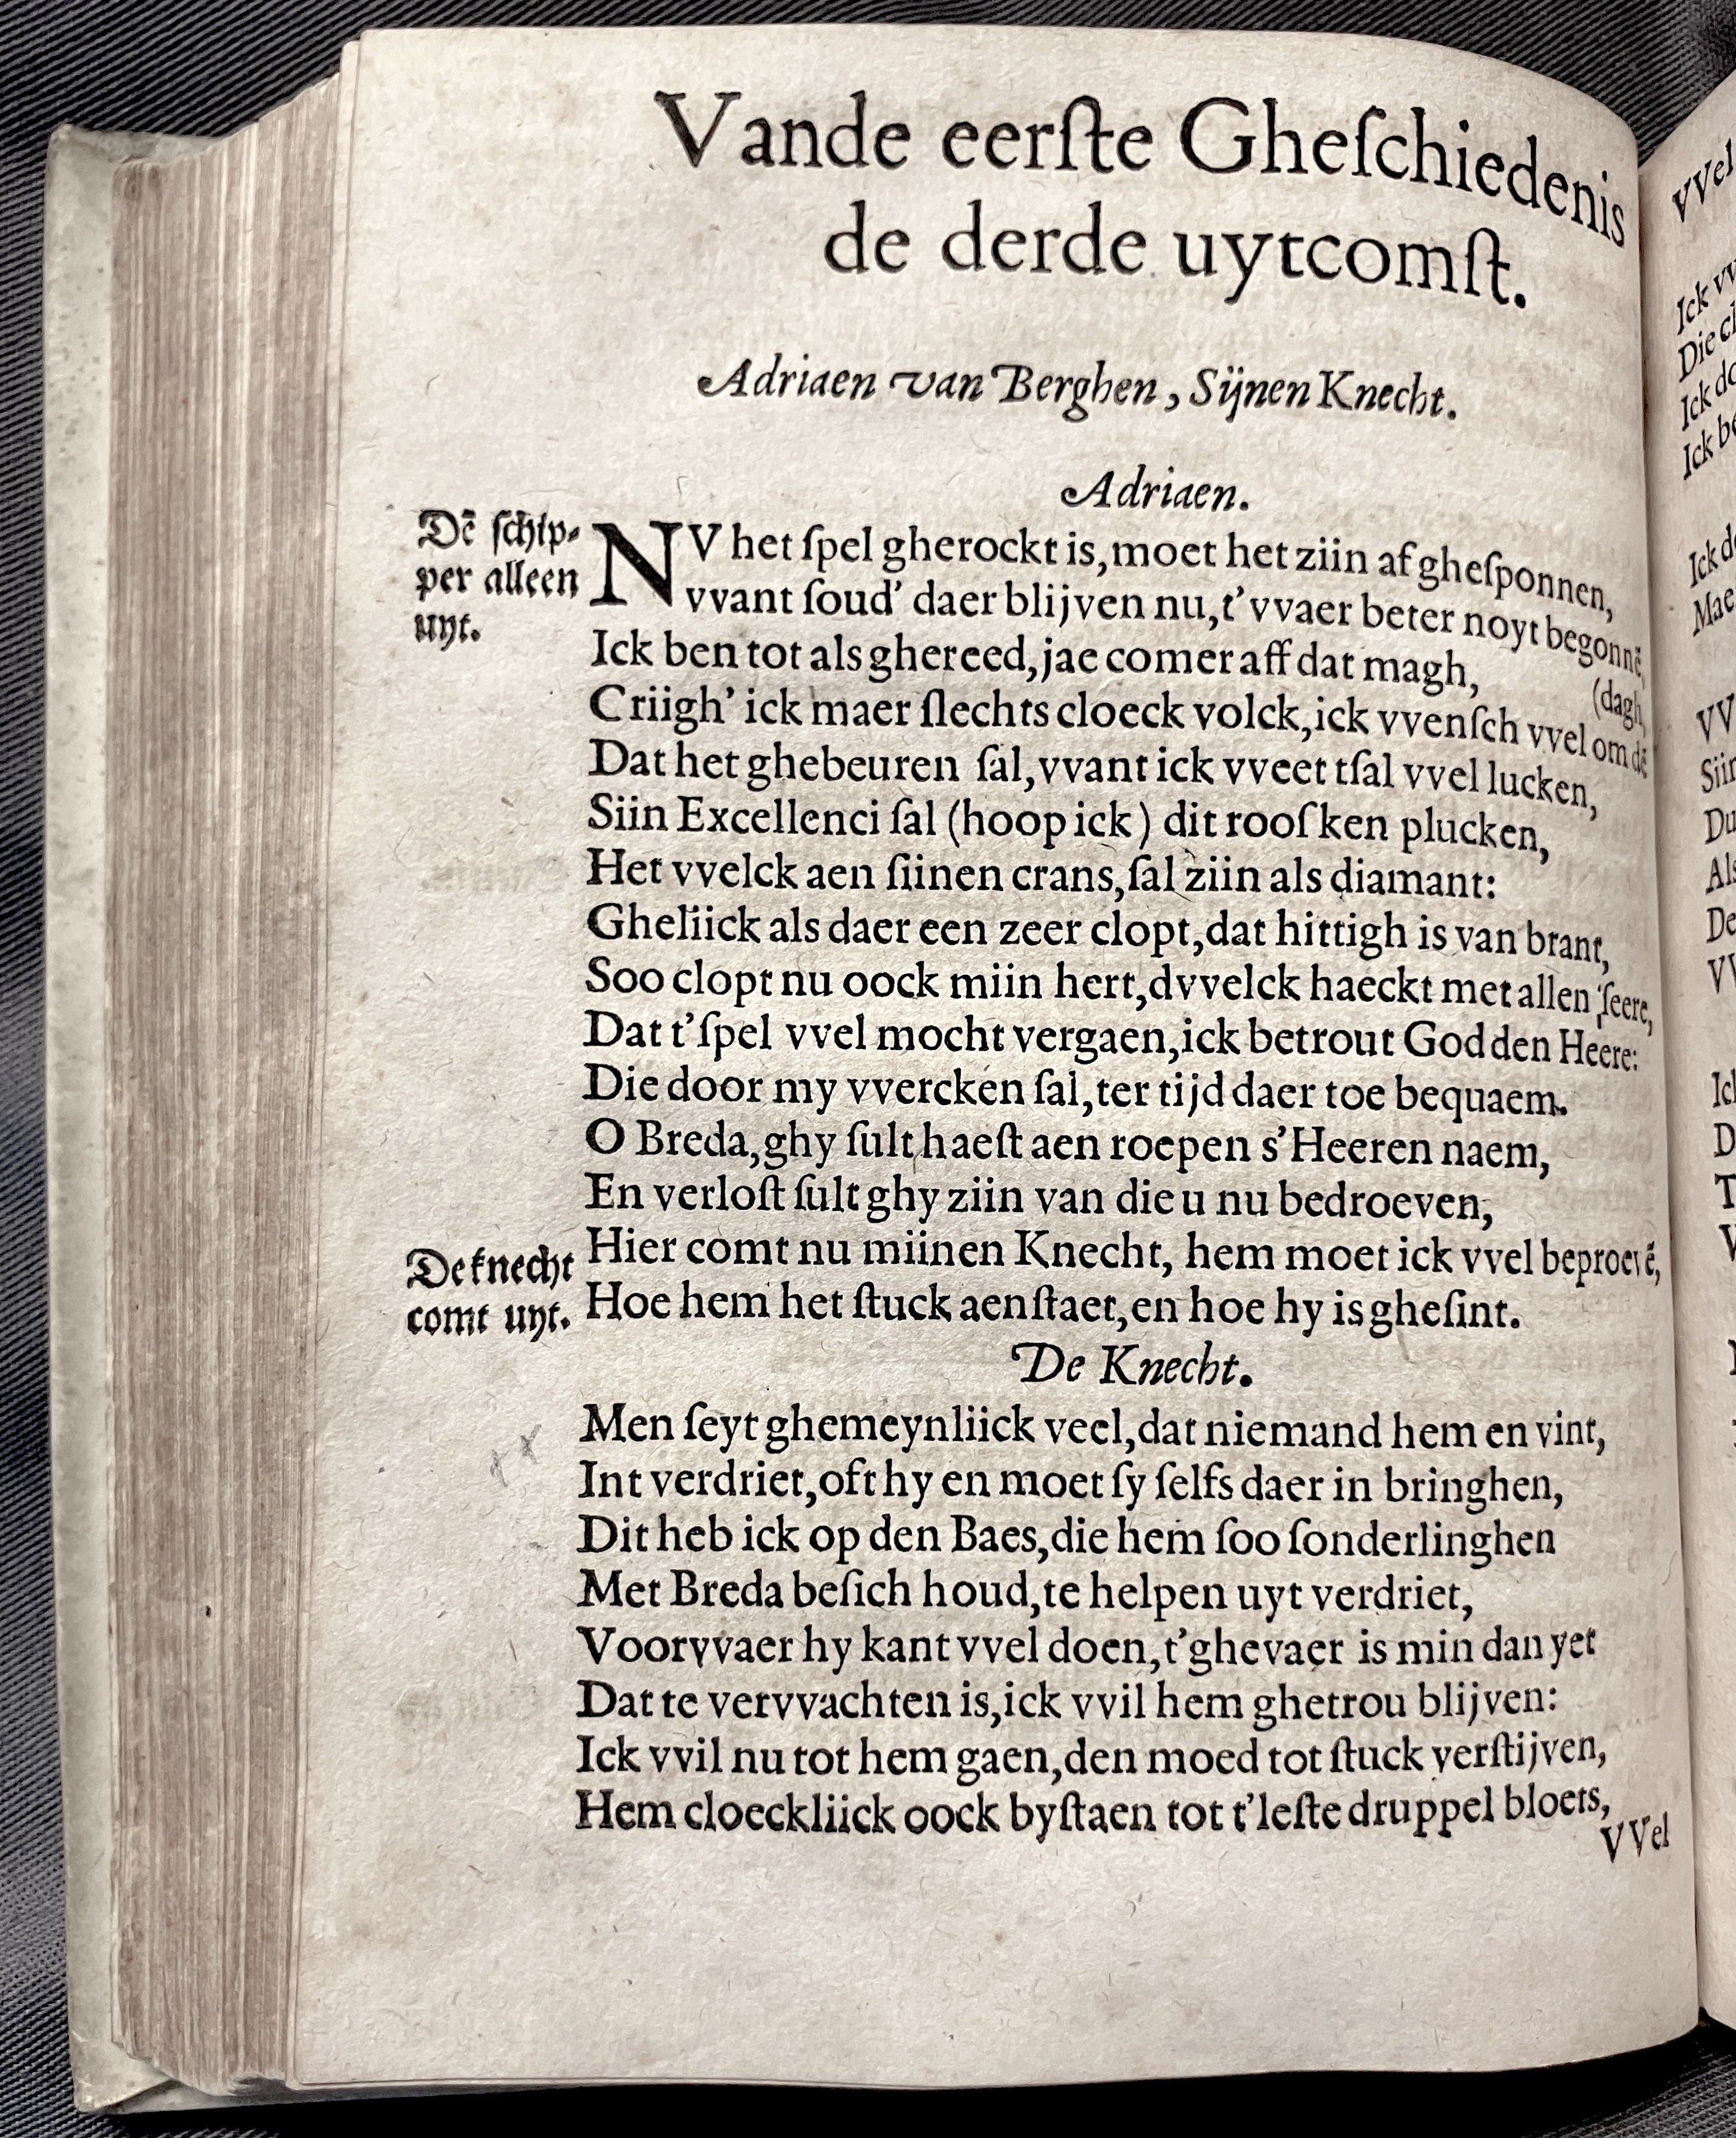 Vande eerſte Gheſchiedenis
de derde uytcomſt.
Adriaen van Berghen, Sijnen Knecht.
Adriaen.
Dē ſchip-
per alleen
uyt.
NV het ſpel gherockt is, moet het ziin af gheſponnen,
vvant ſoud' daer blijven nu, t'vvaer beter noyt begonnē,
Ick ben tot als ghereed, jae comer aff dat magh,
(dagh,
Criigh' ick maer ſlechts cloeck volck, ick vvenſch vvel om dē
Dat het ghebeuren ſal, vvant ick vveet tſal vvel lucken,
Siin Excellenci ſal (hoop ick) dit rooſken plucken,
Het vvelck aen ſiinen crans, ſal ziin als diamant:
Gheliick als daer een zeer clopt, dat hittigh is van brant,
Soo clopt nu oock miin hert, dvvelck haeckt met allen ſeere,
Dat t'ſpel vvel mocht vergaen, ick betrout God den Heere:
Die door my vvercken ſal, ter tijd daer toe bequaem.
O Breda, ghy ſult haeſt aen roepen s'Heeren naem,
En verloſt ſult ghy ziin van die u nu bedroeven,
De knecht
comt uyt.
Hier comt nu miinen Knecht, hem moet ick vvel beproevē,
Hoe hem het ſtuck aenſtaet, en hoe hy is gheſint.
De Knecht.
Men ſeyt ghemeynliick veel, dat niemand hem en vint,
Int verdriet, oft hy en moet ſy ſelfs daer in bringhen,
Dit heb ick op den Baes, die hem ſoo ſonderlinghen
Met Breda beſich houd, te helpen uyt verdriet,
Voorvvaer hy kant vvel doen, t'ghevaer is min dan yet
Dat te vervvachten is, ick vvil hem ghetrou blijven:
Ick vvil nu tot hem gaen, den moed tot ſtuck verſtijven,
Hem cloeckliick oock byſtaen tot t'leſte druppel bloets,
VVel